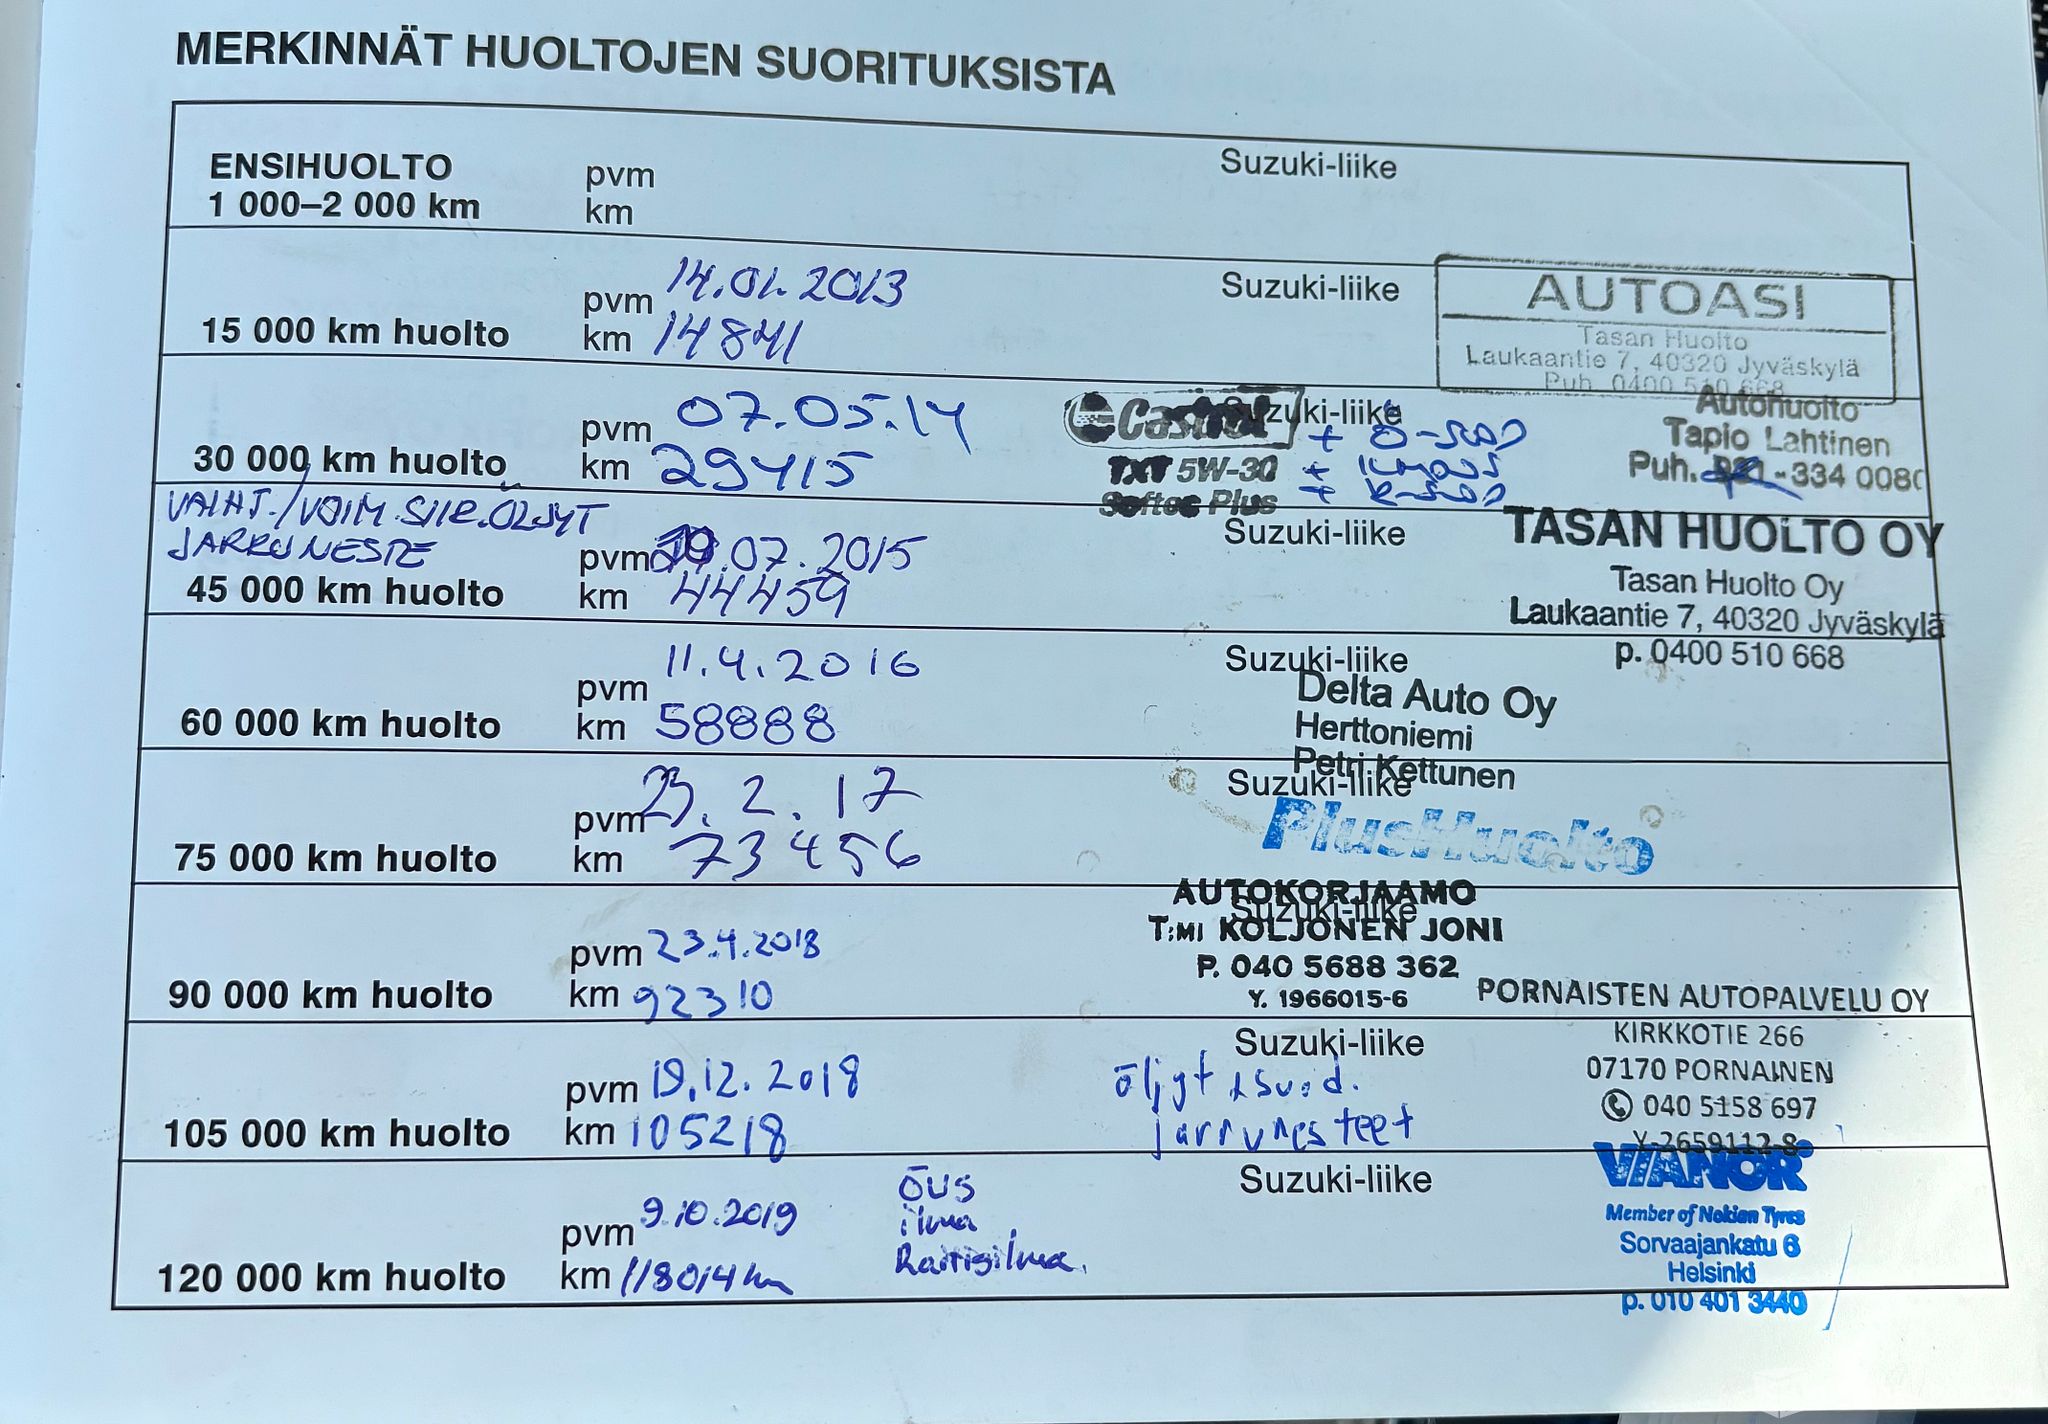 MERKINNÄT HUOLTOJEN SUORITUKSISTA
ENSIHUOLTO
1 000–2 000 km
pvm
km
Suzuki-liike
15 000 km huolto
pvm 14.01.2013
km 14841
Suzuki-liike
AUTOASI
Tasan Huolto
Laukaantie 7, 40320 Jyväskylä
Puh. 0400 510 668
30 000 km huolto
pvm 07.05.14
km 29415
Suzuki-liike
Castrol
TXT 5W-30
Softec Plus
+ Ö-
+
+
Autohuolto
Tapio Lahtinen
Puh. -334 0080
VAIHT./VOIM.SIIR.ÖLJYT
JARRUNESTE
45 000 km huolto
pvm .07.2015
km 44459
Suzuki-liike
TASAN HUOLTO OY
Tasan Huolto Oy
Laukaantie 7, 40320 Jyväskylä
p. 0400 510 668
60 000 km huolto
pvm 11.4.2016
km 58888
Suzuki-liike
Delta Auto Oy
Herttoniemi
Petri Kettunen
75 000 km huolto
pvm 23.2.17
km 73456
Suzuki-liike
PlusHuolto
90 000 km huolto
pvm 23.4.2018
km 92310
Suzuki-liike
AUTOKORJAAMO
T:MI KOLJONEN JONI
P. 040 5688 362
Y. 1966015-6
105 000 km huolto
pvm 19.12.2018
km 105218
Suzuki-liike
öljyt
jarrunesteet
PORNAISTEN AUTOPALVELU OY
KIRKKOTIE 266
07170 PORNAINEN
040 5158 697
Y-2659112-8
120 000 km huolto
pvm 9.10.2019
km 118014km
öus
ilma
Raitisilma.
Suzuki-liike
VIANOR
Member of Nokian Tyres
Sorvaajankatu 6
Helsinki
p. 010 401 3440